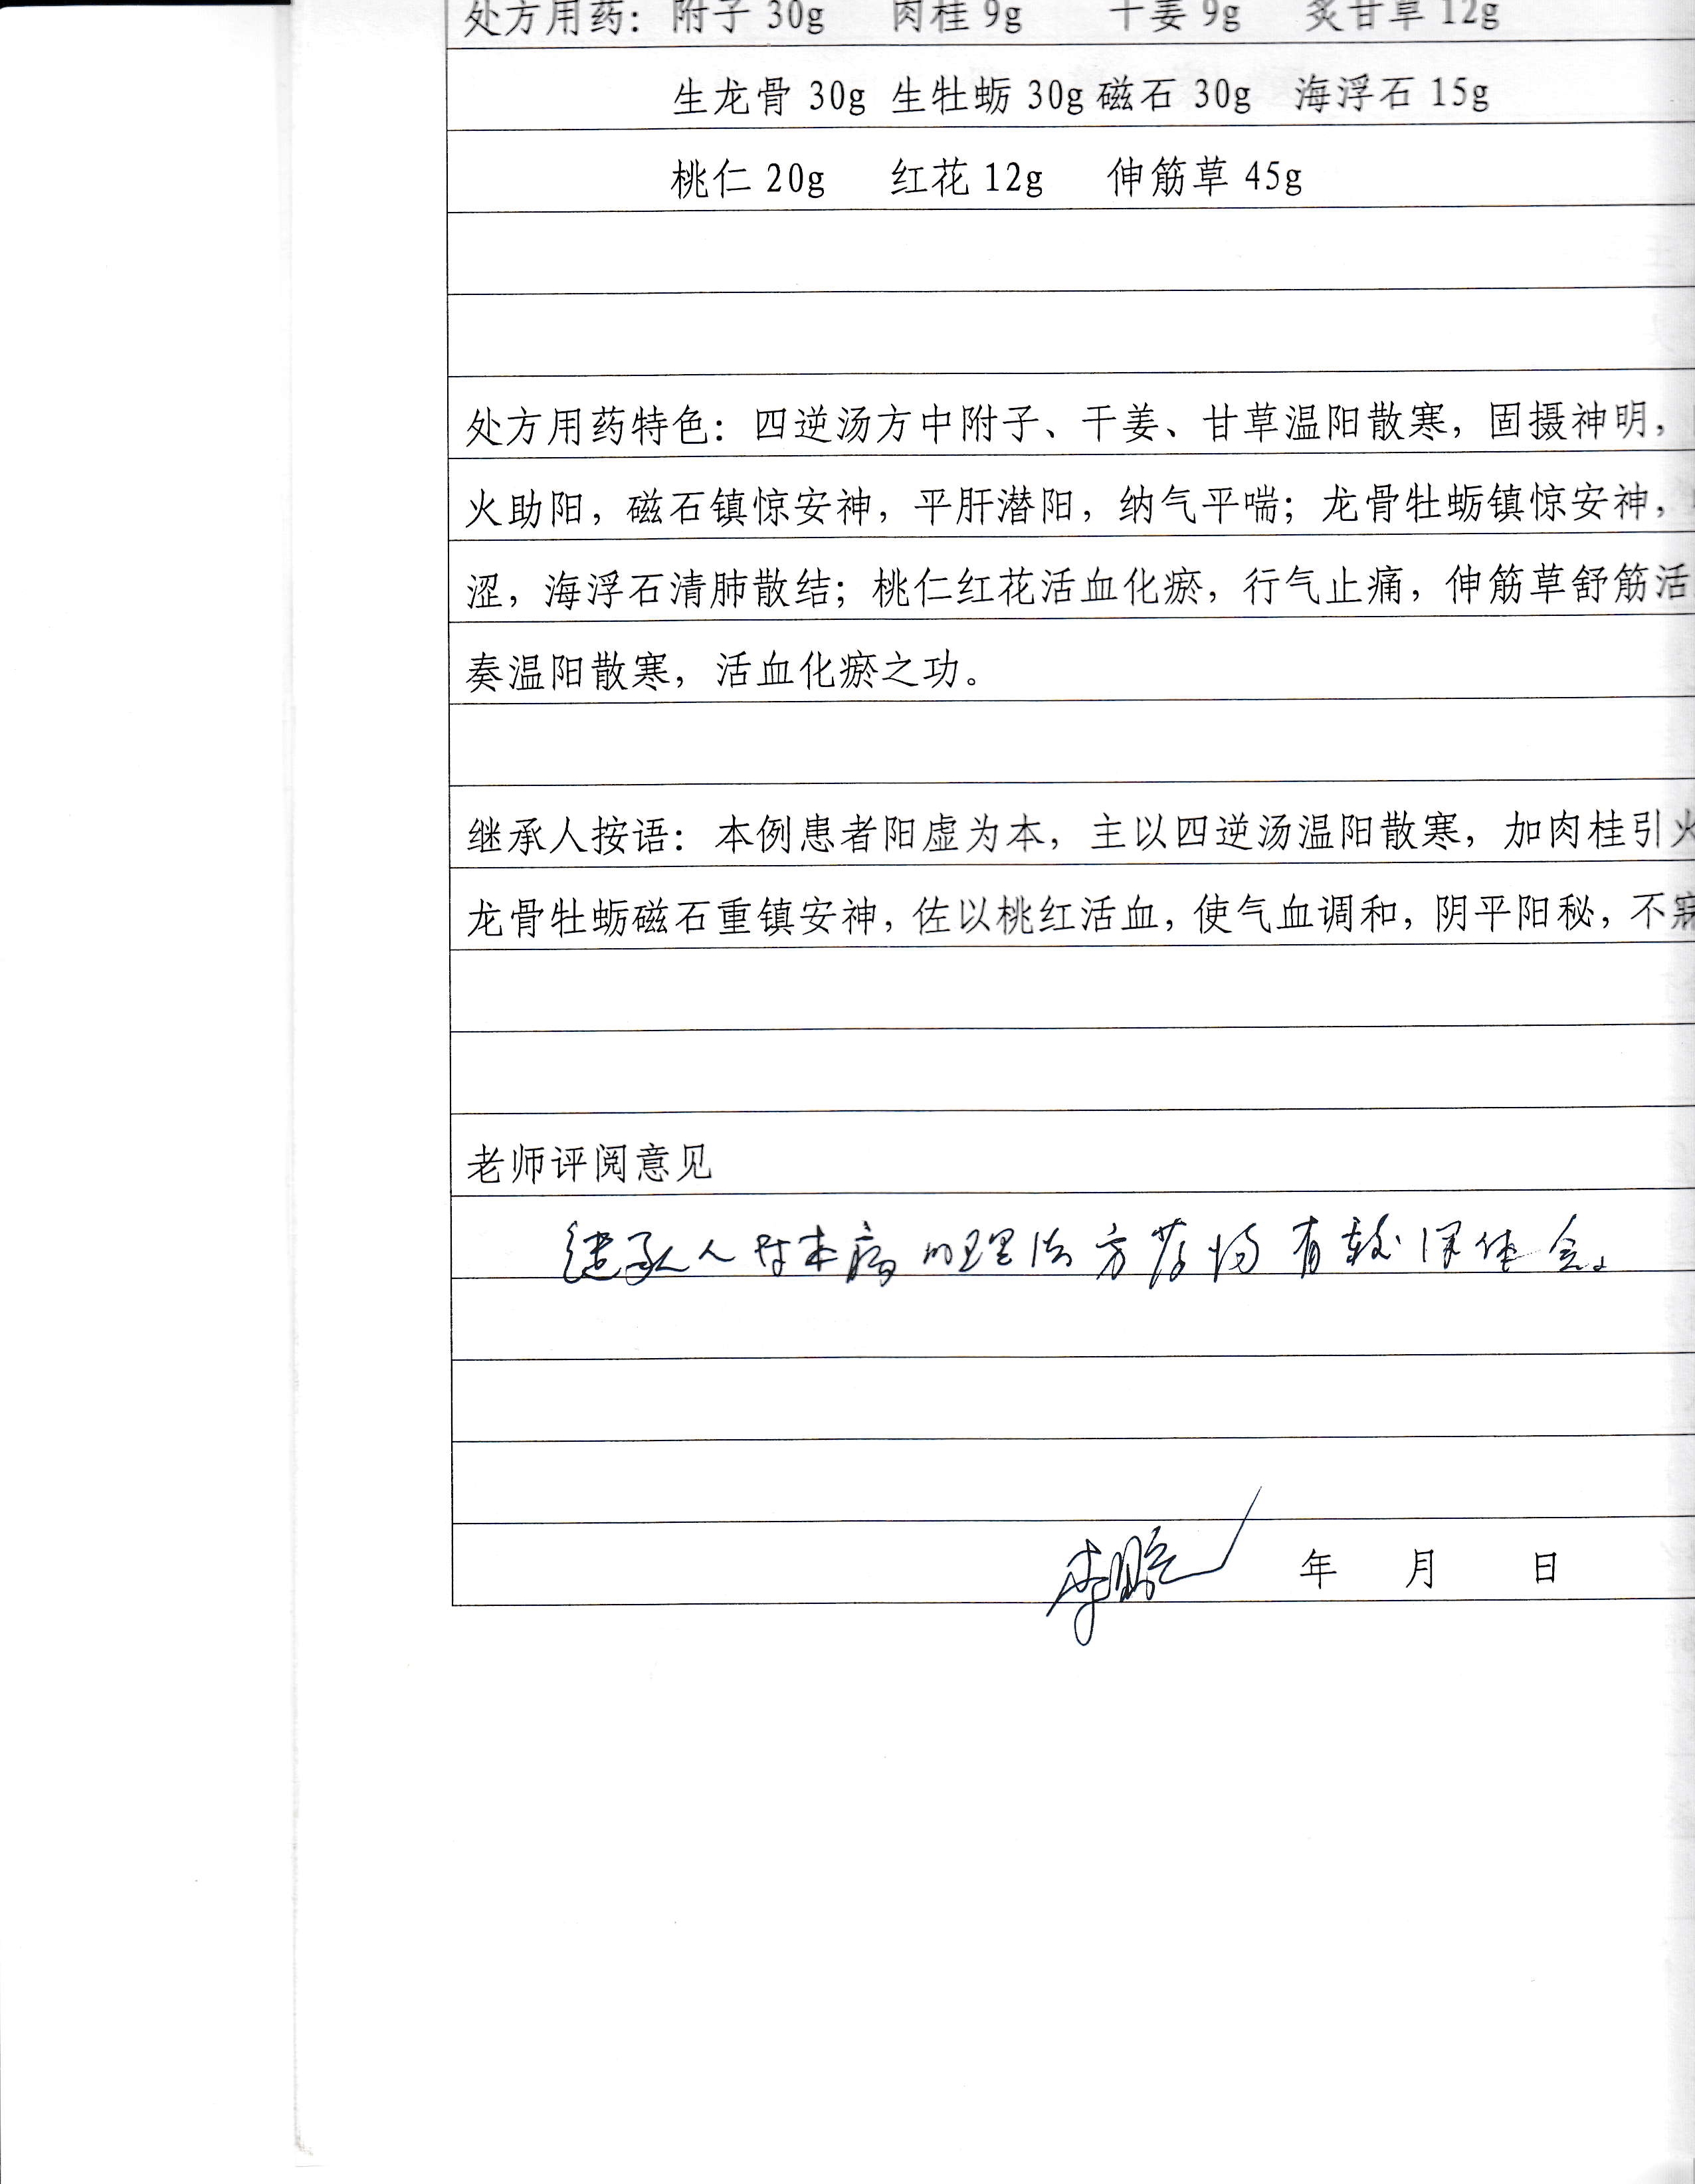 处方用药：附子 30g 肉桂 9g 干姜 9g 炙甘草 12g
生龙骨 30g 生牡蛎 30g 磁石 30g 海浮石 15g
桃仁 20g 红花 12g 伸筋草 45g
处方用药特色：四逆汤方中附子、干姜、甘草温阳散寒，固摄神明，
火助阳，磁石镇惊安神，平肝潜阳，纳气平喘；龙骨牡蛎镇惊安神，
涩，海浮石清肺散结；桃仁红花活血化瘀，行气止痛，伸筋草舒筋活
奏温阳散寒，活血化瘀之功。
继承人按语：本例患者阳虚为本，主以四逆汤温阳散寒，加肉桂引火
龙骨牡蛎磁石重镇安神，佐以桃红活血，使气血调和，阴平阳秘，不寐
老师评阅意见
继承人对本病的理法方药均有较深体会。
李 年 月 日